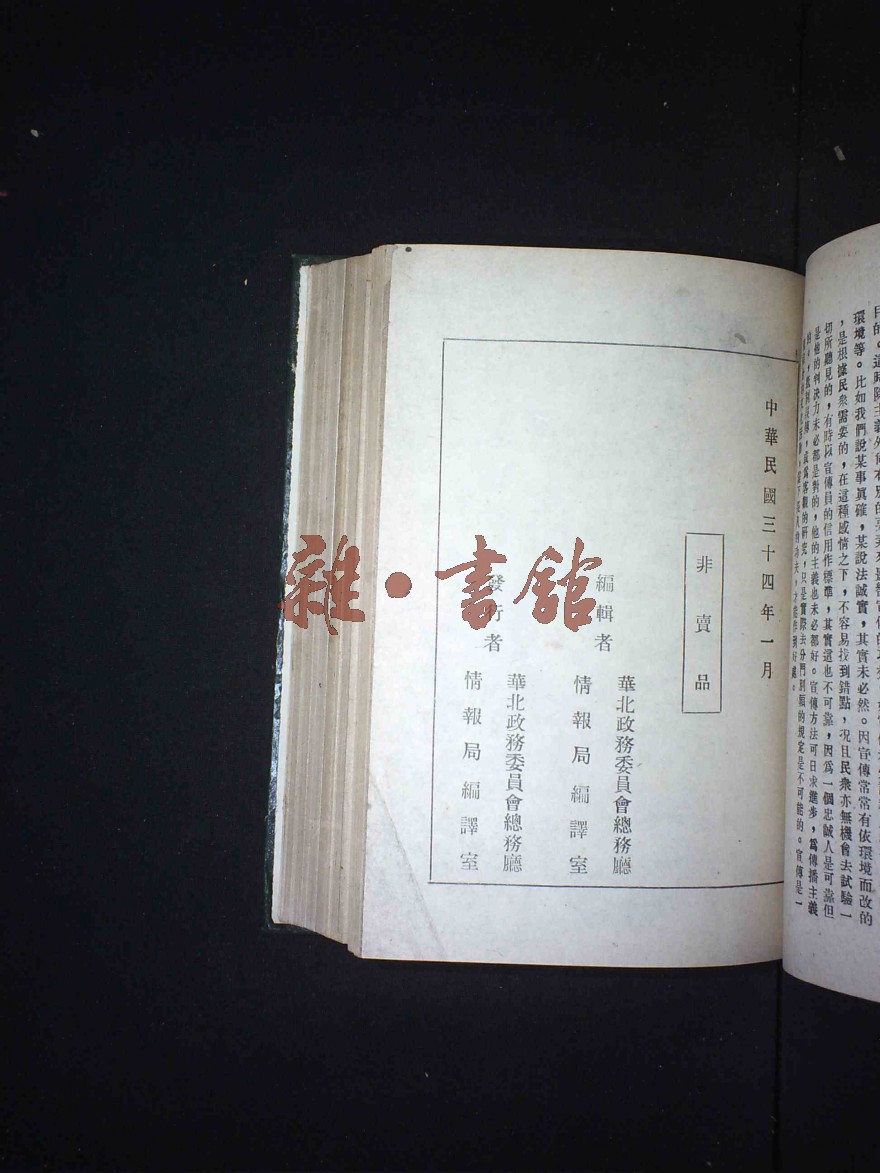 目的。這時除主義外尚有別的
環境等。比如我們說某事眞確，某說法誠實，其實未必然。因宣傳常常有依環境而改的
，是根據民衆需要的，在這種感情之下，不容易找到錯點，況且民衆亦無機會去試驗一
切所聽見的，有時以宣傳員的信用作標準，其實這也不可靠，因爲一個忠誠人是可靠但
是他的判決力未必都是對的，他的主義也未必都好。宣傳方法可日求進步，爲傳播主義
的。，或爲客觀的研究，只是實際去分門別類的規定是不可能的。宣傳是一
中華民國三十四年一月
非賣品
編輯者
華北政務委員會總務廳
情報局編譯室
發行者
華北政務委員會總務廳
情報局編譯室
雜·書館